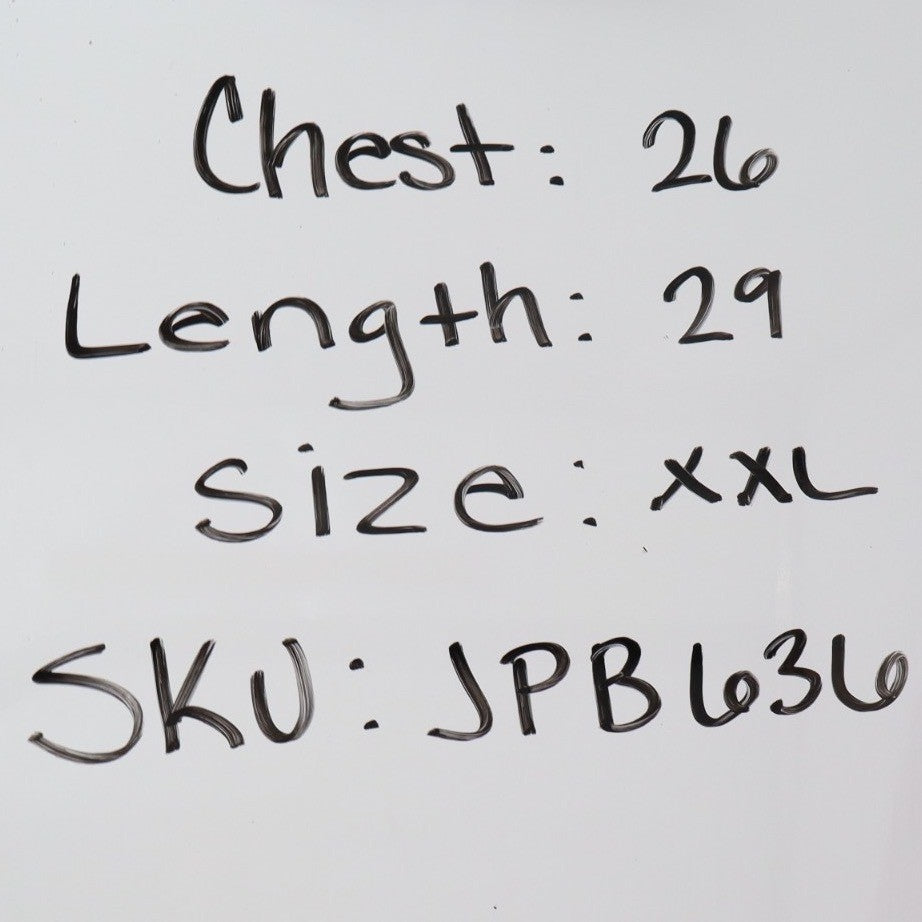 Chest: 26
Length: 29
Size: XXL
SKU: JPB636